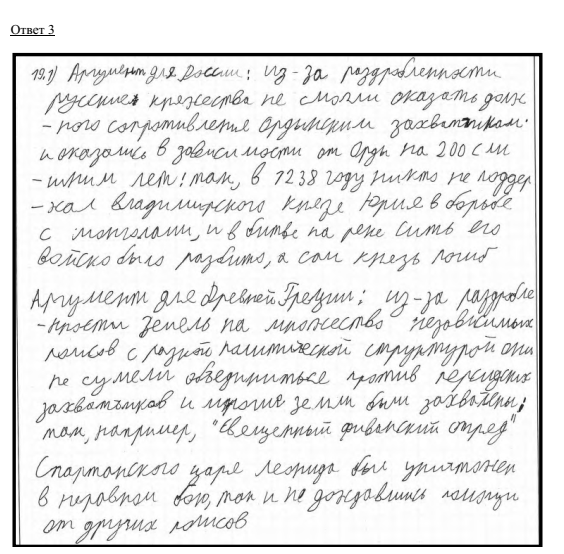 Ответ 3
19.1) Аргумент для России: из-за раздробленности
русские княжества не смогли оказать долж
-ного сопротивления Ордынским захватчикам
и оказались в зависимости от Орды на 200 с ли
-шним лет: так, в 1238 году никто не поддер
-жал владимирского князя Юрия в борьбе
с монголами, и в битве на реке Сить его
войско было разбито, а сам князь погиб
Аргумент для Древней Греции: из-за раздробле
-нности земель на множество независимых
полисов с разной политической структурой они
не сумели объединиться против персидских
захватчиков и многие земли были захвачены;
так, например, "Священный фиванский отряд"
Спартанского царя Леонида был уничтожен
в неравном бою, так и не дождавшись помощи
от других полисов